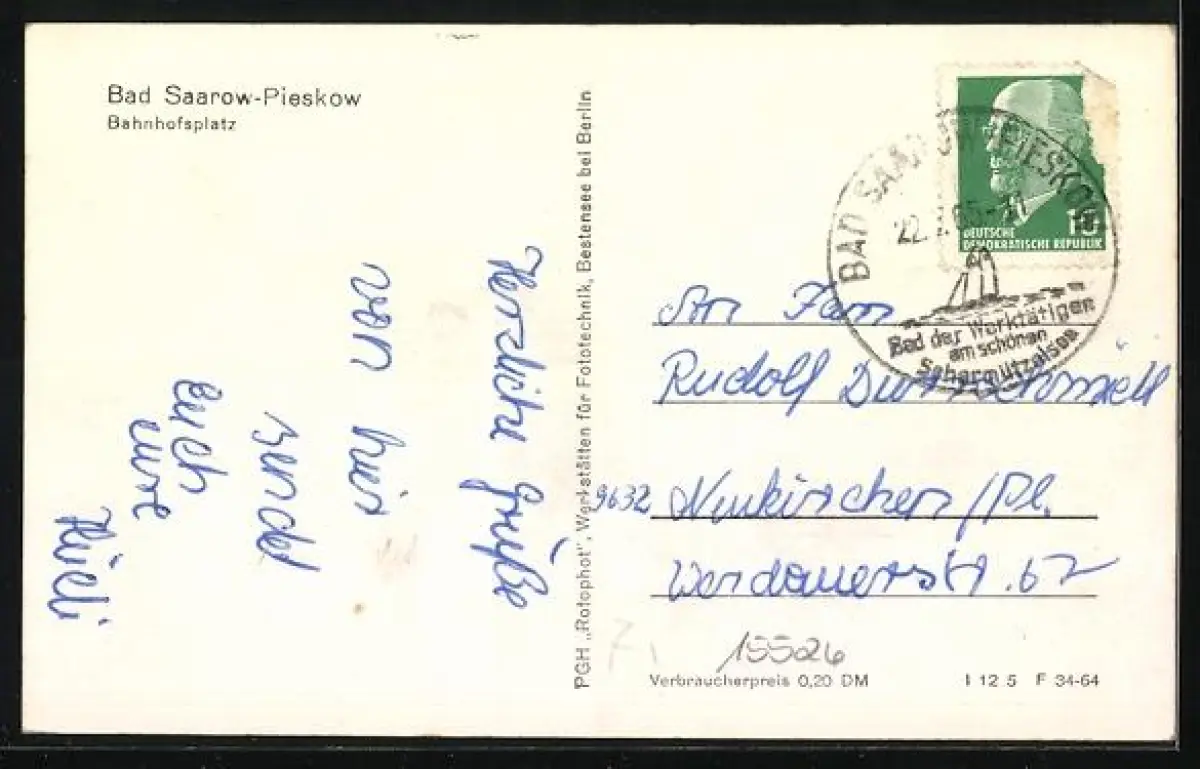 Bad Saarow-Pieskow
Bahnhofsplatz
Herzliche Grüße
von hier
sendet
Euch
eure
PGH „Rotophot“, Werkstätten für Fototechnik, Bestensee bei Berlin
BAD SAAROW-PIESKOW
22.
Bad der Werktätigen
am schönen
Scharmützelsee
10
DEUTSCHE
DEMOKRATISCHE REPUBLIK
An Fam
Rudolf
9632 Neukirchen/Pl.
Werdauerstr. 62
15526
Verbraucherpreis 0,20 DM
I 12 5 F 34-64